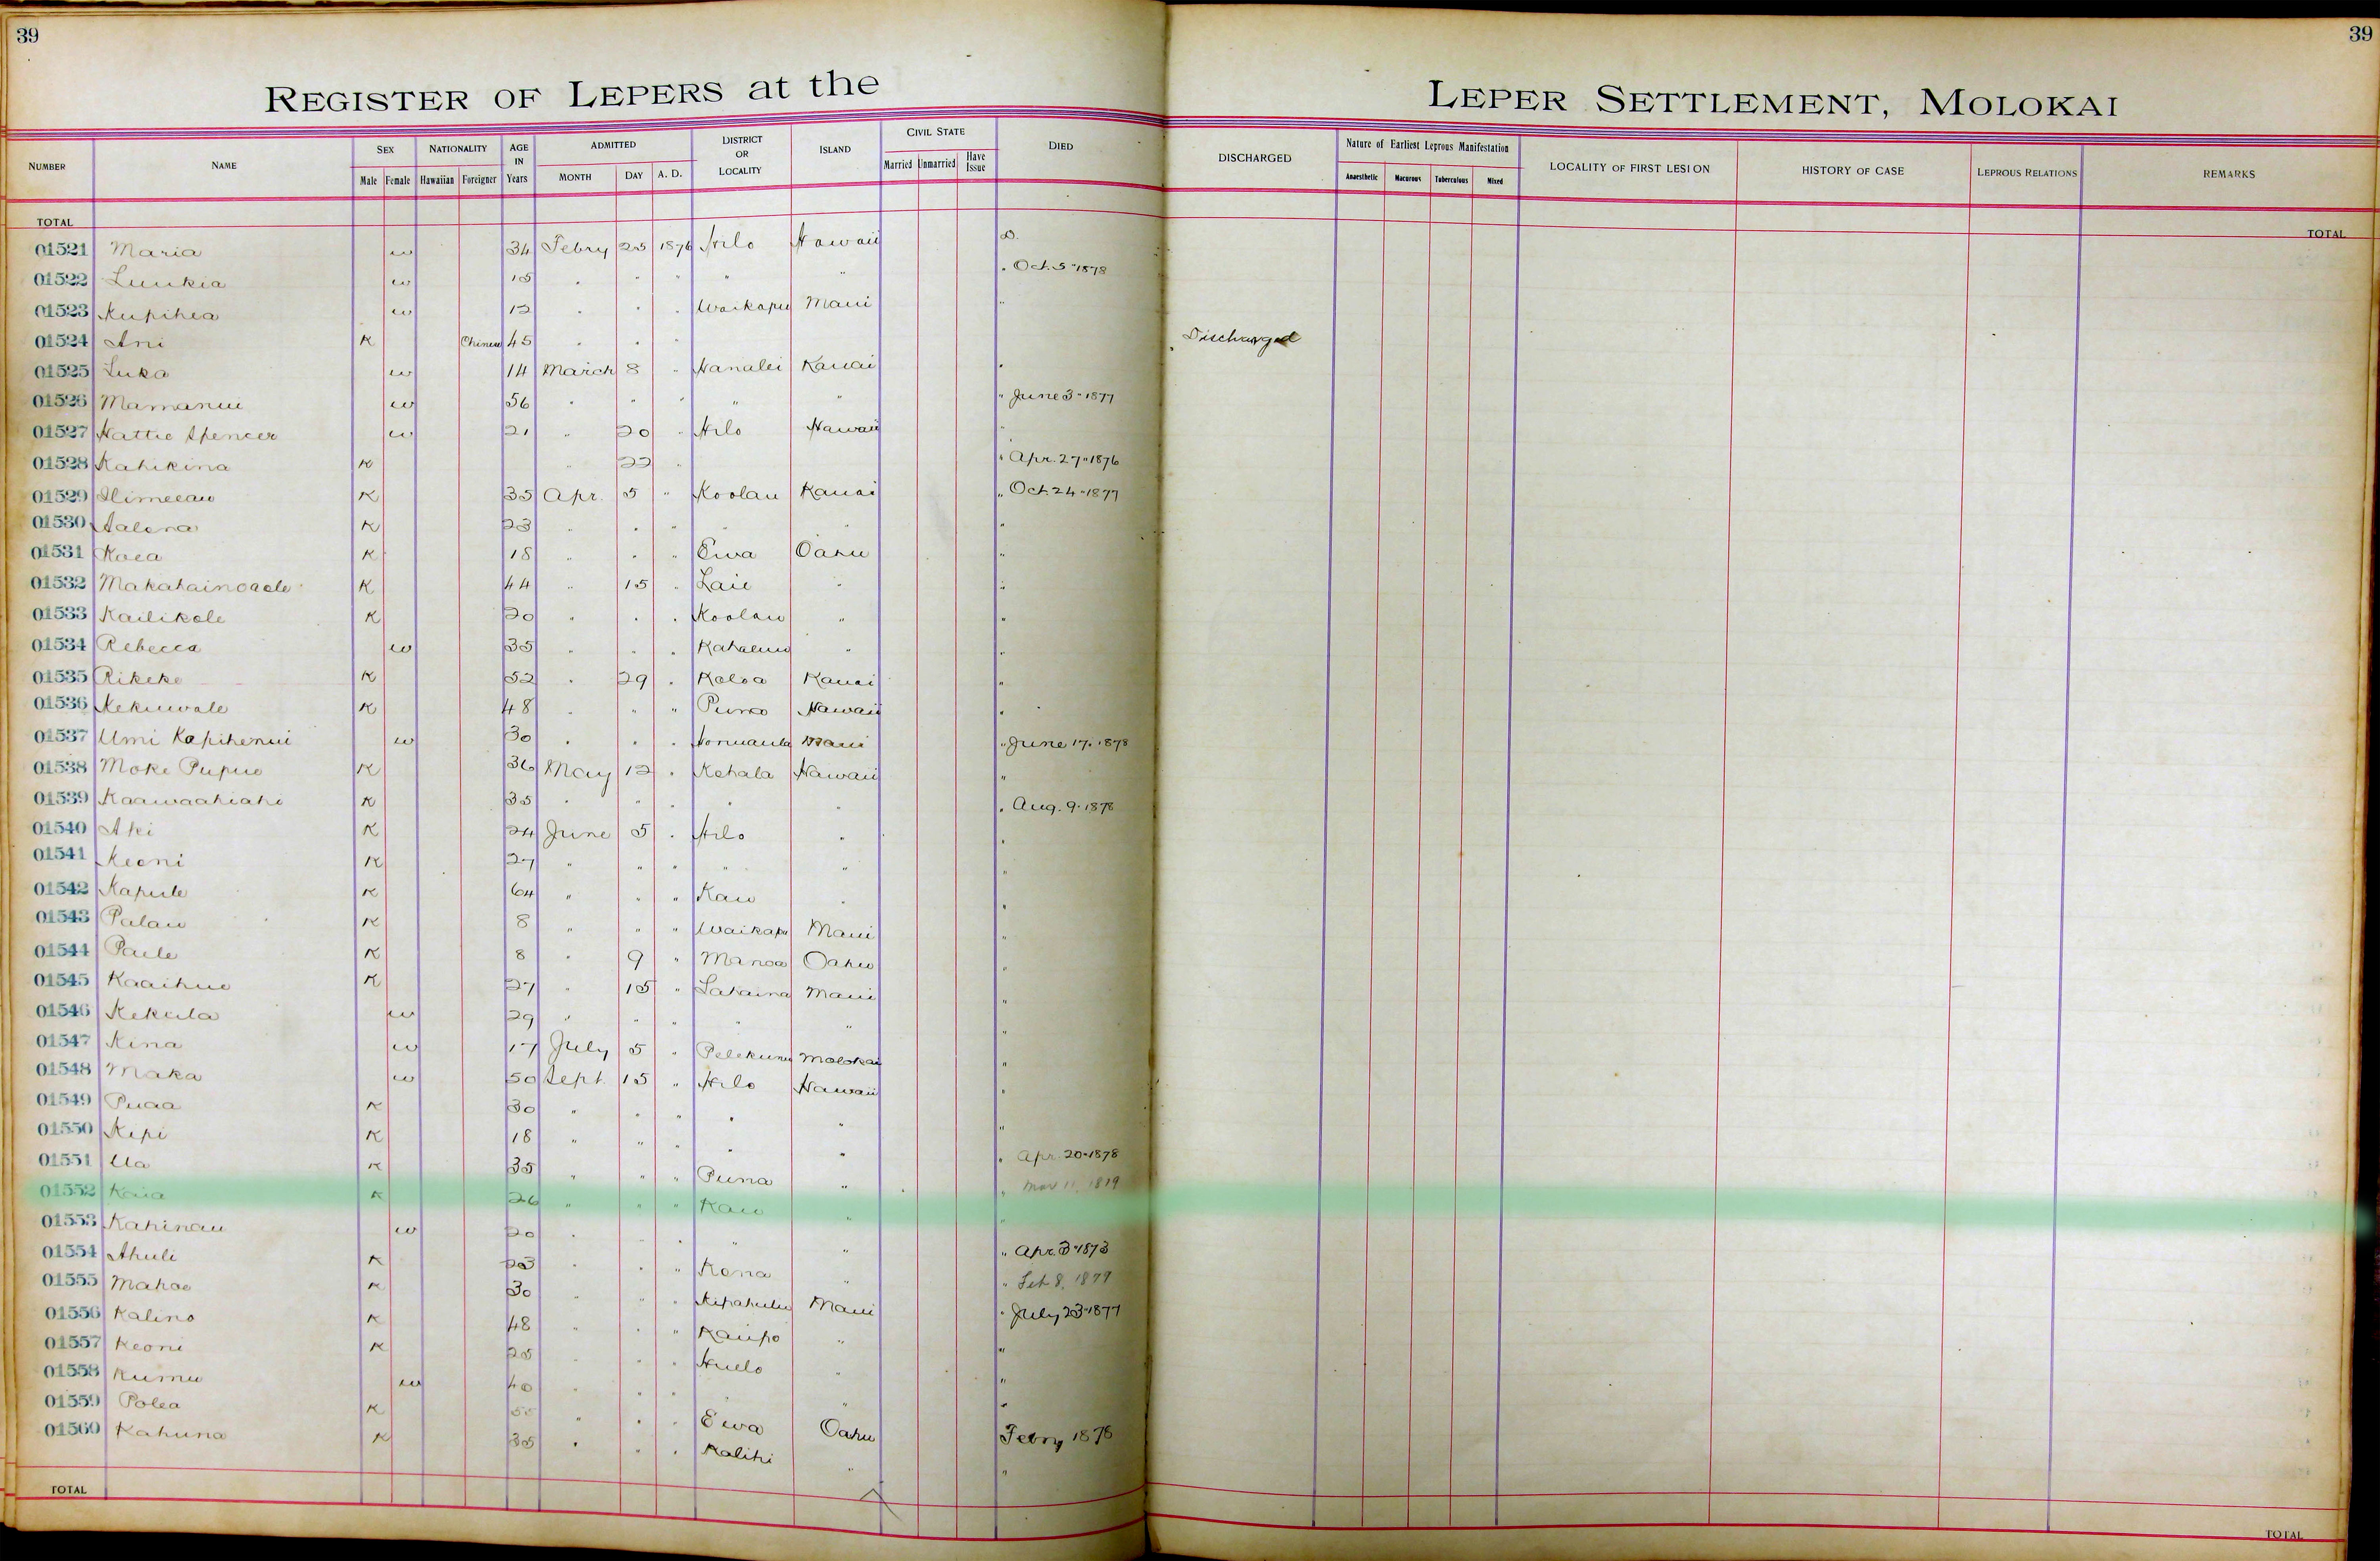 39
39
REGISTER OF LEPERS at the LEPER SETTLEMENT, MOLOKAI
NUMBER NAME SEX Male Female NATIONALITY Hawaiian Foreigner AGE IN Years ADMITTED MONTH DAY A. D. DISTRICT OR LOCALITY ISLAND CIVIL STATE Married Unmarried Have Issue DIED DISCHARGED Nature of Earliest Leprous Manifestation Anaesthetic Macurous Tuberculous Mixed LOCALITY OF FIRST LESION HISTORY OF CASE LEPROUS RELATIONS REMARKS
TOTAL TOTAL
01521 Maria w 34 Febry 25 1876 Hilo Hawaii D.
01522 Luukia w 15 " " " " " " Oct. 5 " 1878
01523 Kupihea w 12 " " " Waikapu Maui "
01524 Ani K Chinese 45 " " " Discharged
01525 Luka w 14 March 8 " Hanalei Kauai "
01526 w 56 " " " " " " June 3 " 1877
01527 Hattie Spencer w 21 " 20 " Hilo Hawaii "
01528 Kahikina K " 22 " " Apr. 27 " 1876
01529 K 35 Apr. 5 " Koolau Kauai " Oct. 24 " 1877
01530 K 23 " " " " " "
01531 Koea K 18 " " " Ewa Oahu "
01532 K 44 " 15 " Laie " "
01533 Kailikole K 20 " " " Koolau " "
01534 Rebecca w 35 " " " Kahaluu " "
01535 Rikeke K 52 " 29 " Koloa Kauai "
01536 Kekuwale K 48 " " " Puna Hawaii "
01537 Umi Kapihenui w 30 " " " Honuaula Maui " June 17 " 1878
01538 Moke Pupue K 36 May 12 " Kohala Hawaii "
01539 Kaawaahiahi K 35 " " " " " " Aug. 9 " 1878
01540 Aki K 24 June 5 " Hilo " "
01541 Keoni K 27 " " " " " "
01542 Kapule K 64 " " " Kau " "
01543 Palau K 8 " " " Waikapu Maui "
01544 Paele K 8 " 9 " Manoa Oahu "
01545 Kaaihue K 27 " 15 " Lahaina Maui "
01546 Kekula w 29 " " " " " "
01547 Kina w 17 July 5 " Pelekunu Molokai "
01548 Maka w 50 Sept. 15 " Hilo Hawaii "
01549 Puaa K 30 " " " " " "
01550 Kepi K 18 " " " " " " Apr. 20 " 1878
01551 Ua K 35 " " " Puna " "
01552 Kaia K 26 " " " Kau " "
01553 Kahinau w 20 " " " " " " Apr. 3 " 1873
01554 Ahuli K 23 " " " Kona " " Feb 8, 1879
01555 Mahoe K 30 " " " Kipahulu Maui " July 23 " 1877
01556 Kalino K 48 " " " Kaupo " "
01557 Keoni K 25 " " " Huelo " "
01558 Kumu w 40 " " " " " "
01559 Polea K 55 " " " Ewa Oahu Febry 1878
01560 Kahuna K 35 " " " Kalihi " "
TOTAL TOTAL